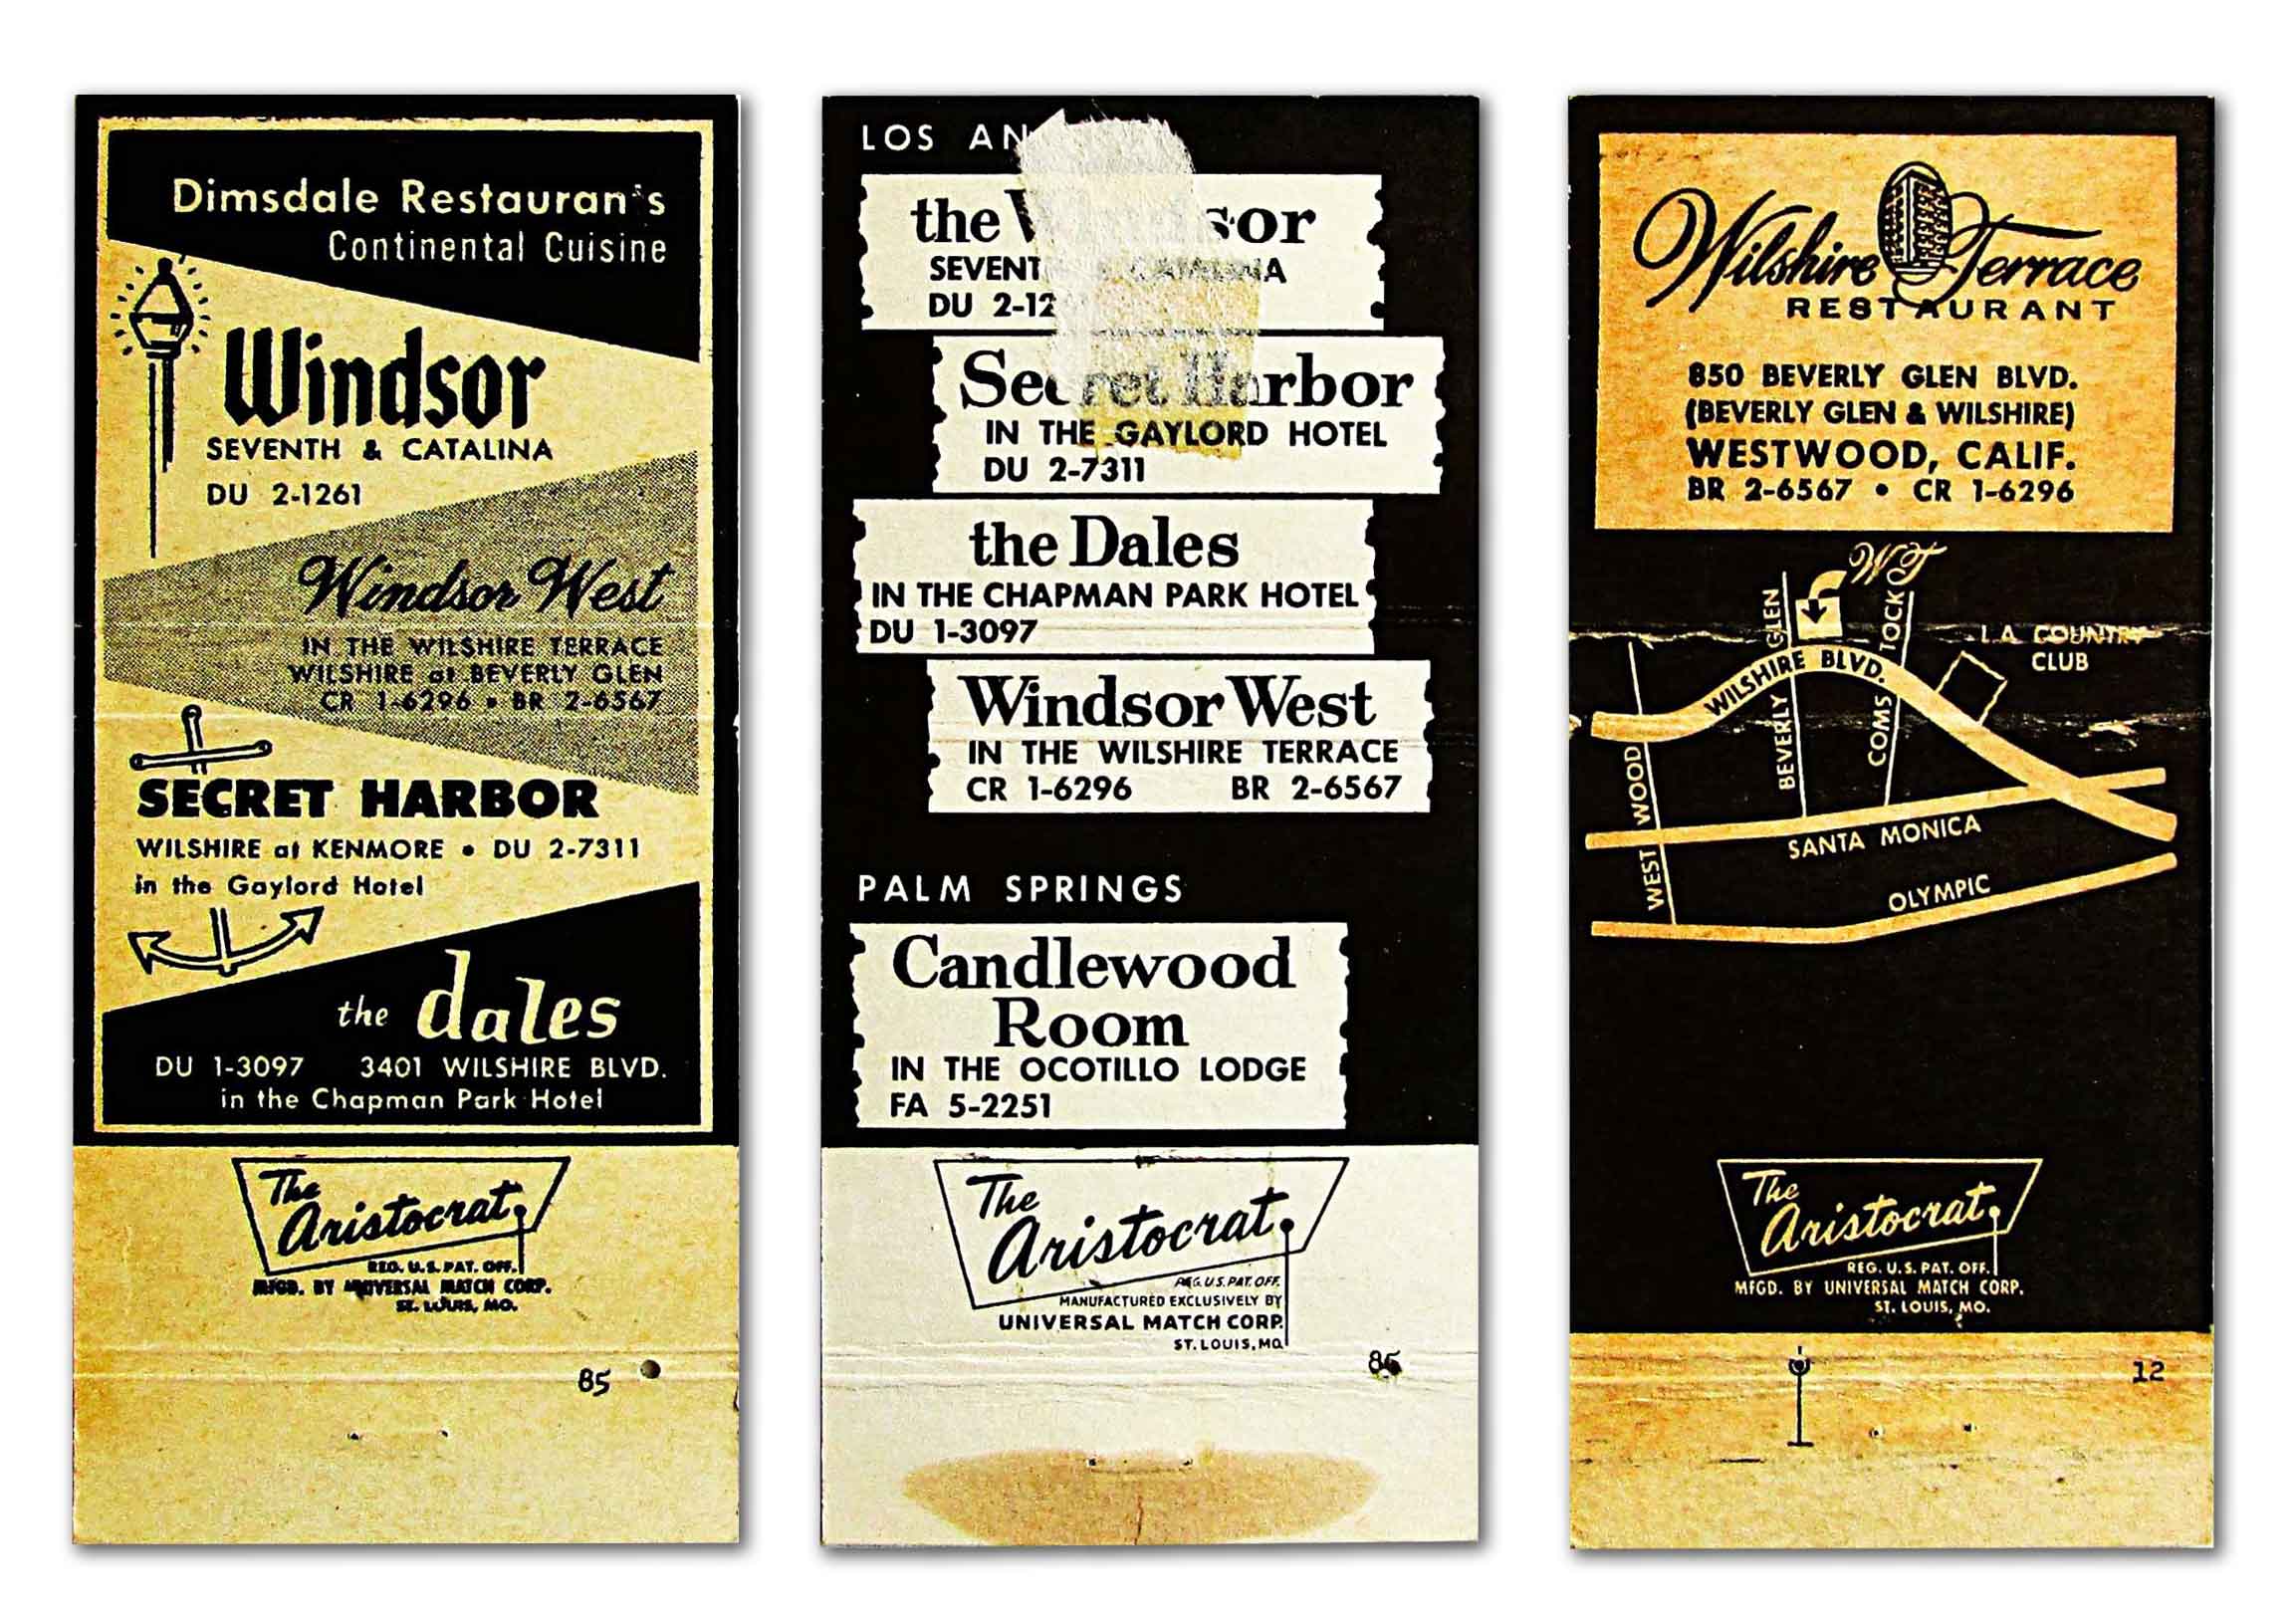 Dimsdale Restaurants
Continental Cuisine
Windsor
SEVENTH & CATALINA
DU 2-1261
Windsor West
IN THE WILSHIRE TERRACE
WILSHIRE at BEVERLY GLEN
CR 1-6296 • BR 2-6567
SECRET HARBOR
WILSHIRE at KENMORE • DU 2-7311
in the Gaylord Hotel
the dales
DU 1-3097 3401 WILSHIRE BLVD.
in the Chapman Park Hotel
The
Aristocrat
REG. U.S. PAT. OFF.
MFGD. BY UNIVERSAL MATCH CORP.
ST. LOUIS, MO.
85
LOS AN
the Windsor
SEVENTH & CATALINA
DU 2-12
Secret Harbor
IN THE GAYLORD HOTEL
DU 2-7311
the Dales
IN THE CHAPMAN PARK HOTEL
DU 1-3097
Windsor West
IN THE WILSHIRE TERRACE
CR 1-6296 BR 2-6567
PALM SPRINGS
Candlewood
Room
IN THE OCOTILLO LODGE
FA 5-2251
The
Aristocrat
REG. U.S. PAT. OFF.
MANUFACTURED EXCLUSIVELY BY
UNIVERSAL MATCH CORP.
ST. LOUIS, MO.
Wilshire Terrace
RESTAURANT
850 BEVERLY GLEN BLVD.
(BEVERLY GLEN & WILSHIRE)
WESTWOOD, CALIF.
BR 2-6567 • CR 1-6296
WT
BEVERLY GLEN
COMSTOCK
L.A. COUNTRY
CLUB
WILSHIRE BLVD.
WESTWOOD
SANTA MONICA
OLYMPIC
The
Aristocrat
REG. U.S. PAT. OFF.
MFGD. BY UNIVERSAL MATCH CORP.
ST. LOUIS, MO.
12